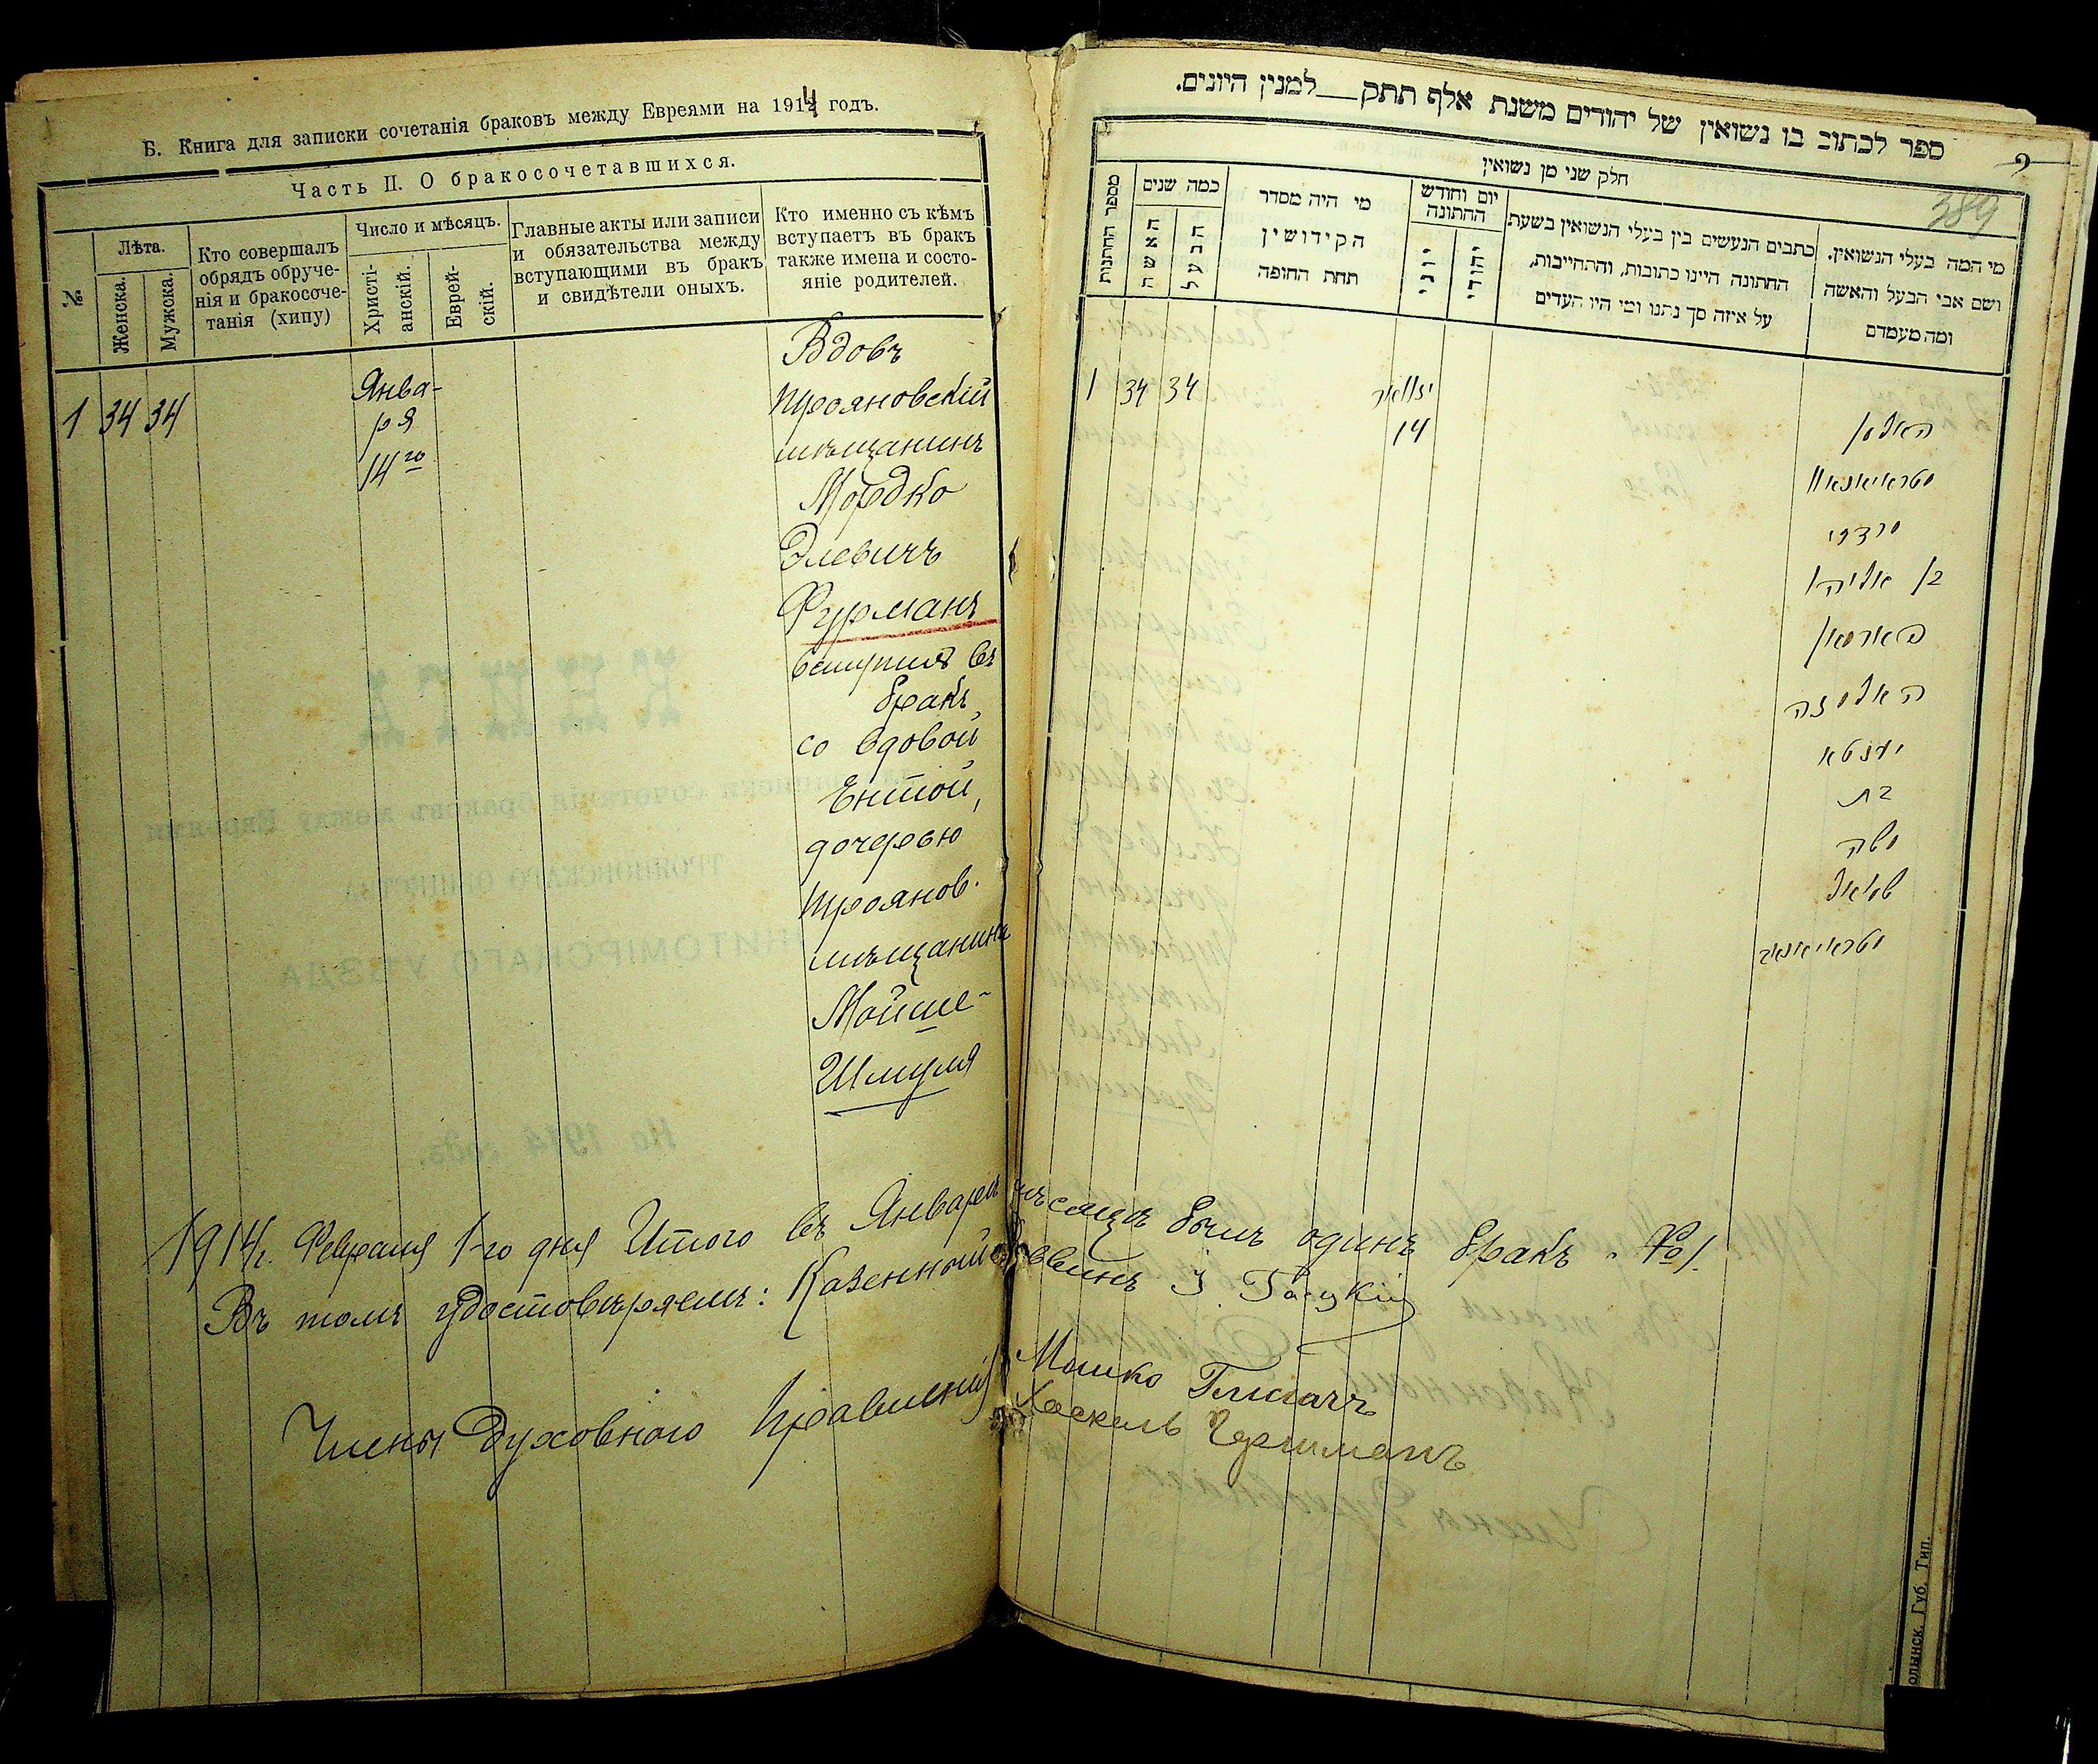 Б. Книга для записки сочетанія браковъ между Евреями на 1914 годъ.
Часть II. О бракосочетавшихся.
№
Лѣта.
Женска.
Мужска.
Кто совершалъ
обрядъ обруче-
нія и бракосоче-
танія (хипу)
Число и мѣсяцъ.
Христі-
анскій.
Еврей-
скій.
Главные акты или записи
и обязательства между
вступающими въ бракъ
и свидѣтели оныхъ.
Кто именно съ кѣмъ
вступаетъ въ бракъ
также имена и состо-
яніе родителей.
1 34 34
Янва-
ря
14го
Вдовъ
Трояновскій
мѣщанинъ
Мордко
Элевичъ
Фурманъ
вступилъ въ
бракъ
со вдовой
Ентой,
дочерью
Троянов.
мѣщанина
Мойше-
Шмуля
ספר לכתוב בו נשואין של יהודים משנת אלף תתק — למנין היונים.
389
חלק שני מן נשואין
מספר החתונות
כמה שנים
האשה
הבעל
מי היה מסדר
הקידושין
תחת החופה
יום וחודש
החתונה
יוני
יהודי
כתבים הנעשים בין בעלי הנשואין בשעת
החתונה היינו כתובות, והתחייבות,
על איזה סך נתנו ומי היו העדים
מי המה בעלי הנשואין.
ושם אבי הבעל והאשה
ומה מעמדם
1 34 34
יאנואר
14
האלמן
מטראיאנאוו
מרדכי
בן אליהו
פארמאן
האלמנה
יענטא
בת
משה
שמואל
מטראיאנאוו
1914 г. Февраля 1-го дня Итого въ Январѣ мѣсяцѣ былъ одинъ бракъ. №1.
Въ томъ удостовѣряемъ: Казенный Раввинъ
Члены Духовного Правленія Мошко Ткачъ
Хаскель Гершманъ
олынск. Губ. Тип.